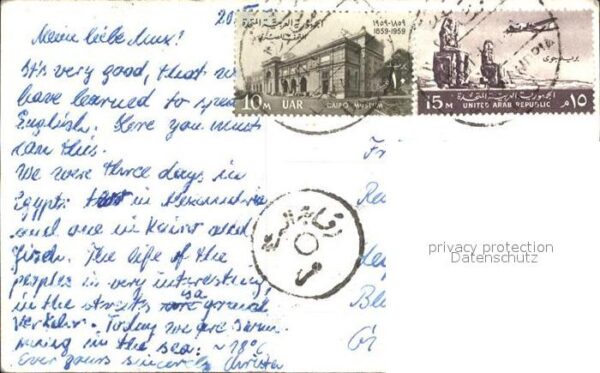 20.
Meine liebe Mux!
It's very good, that we
have learned to speak
English. Here you must
can this.
We were three days in
Egypt: two in Alexandria
and one in Kairo and
Giseh. The life of the
peoples is very interesting,
in the streets is a general
Verkehr. Today we are swim-
ming in the sea. ~ 18°C
Ever yours sincerely Christa
الجمهورية العربية المتحدة
١٨٥٩-١٩٥٩
1859-1959
10 M UAR CAIRO MUSEUM
الجمهورية العربية المتحدة
15 M UNITED ARAB REPUBLIC ١٥ م
بريد جوى
privacy protection
Datenschutz